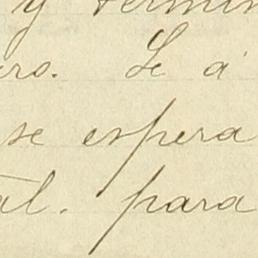 y termin
ero. Se á
se espera
tal. para